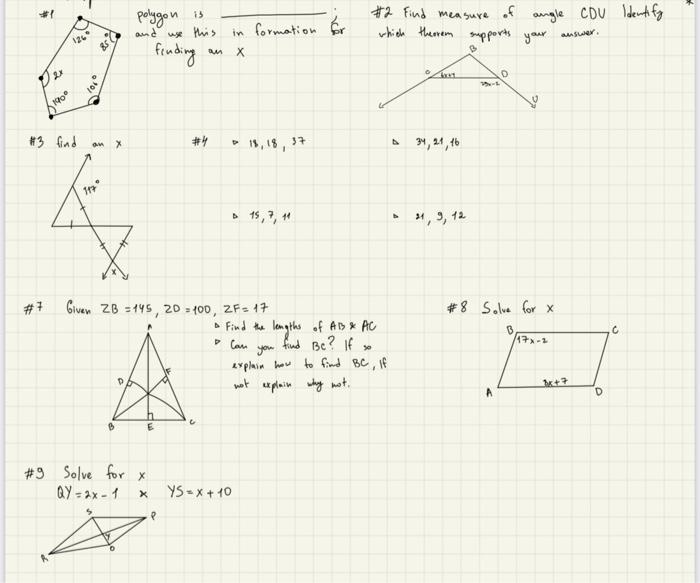 #1
polygon is ________ ;
and use this in formation for
finding an x
126°
85°
2x
140°
106°
#2 Find measure of angle CDU Identify
which theorem supports your answer.
B
C
6x+4
D
U
#3 find an x
117°
x
#4
18, 18, 37
34, 21, 16
15, 7, 11
21, 9, 12
#7 Given ZB = 145, ZD = 100, ZF = 17
Find the lengths of AB & AC
Can you find BC? If so
explain how to find BC, If
not explain why not.
A
D
F
B
E
C
#8 Solve for x
B
C
17x-2
A
D
#9 Solve for x
QY = 2x - 1 x YS = x + 10
S
P
Y
R